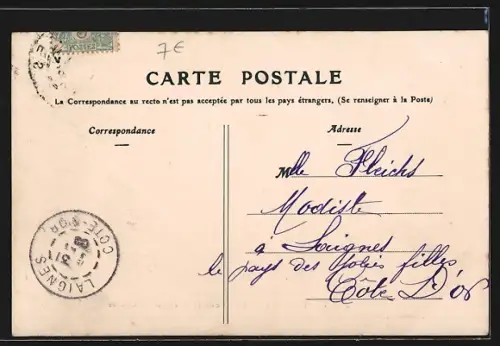 7€
CARTE POSTALE
La Correspondance au recto n'est pas acceptée par tous les pays étrangers, (Se renseigner à la Poste)
Correspondance
Adresse
Mlle Fleichs
Modiste
à Laignes
le pays des jolies filles
Côte D'or
LAIGNES
COTE-D'OR